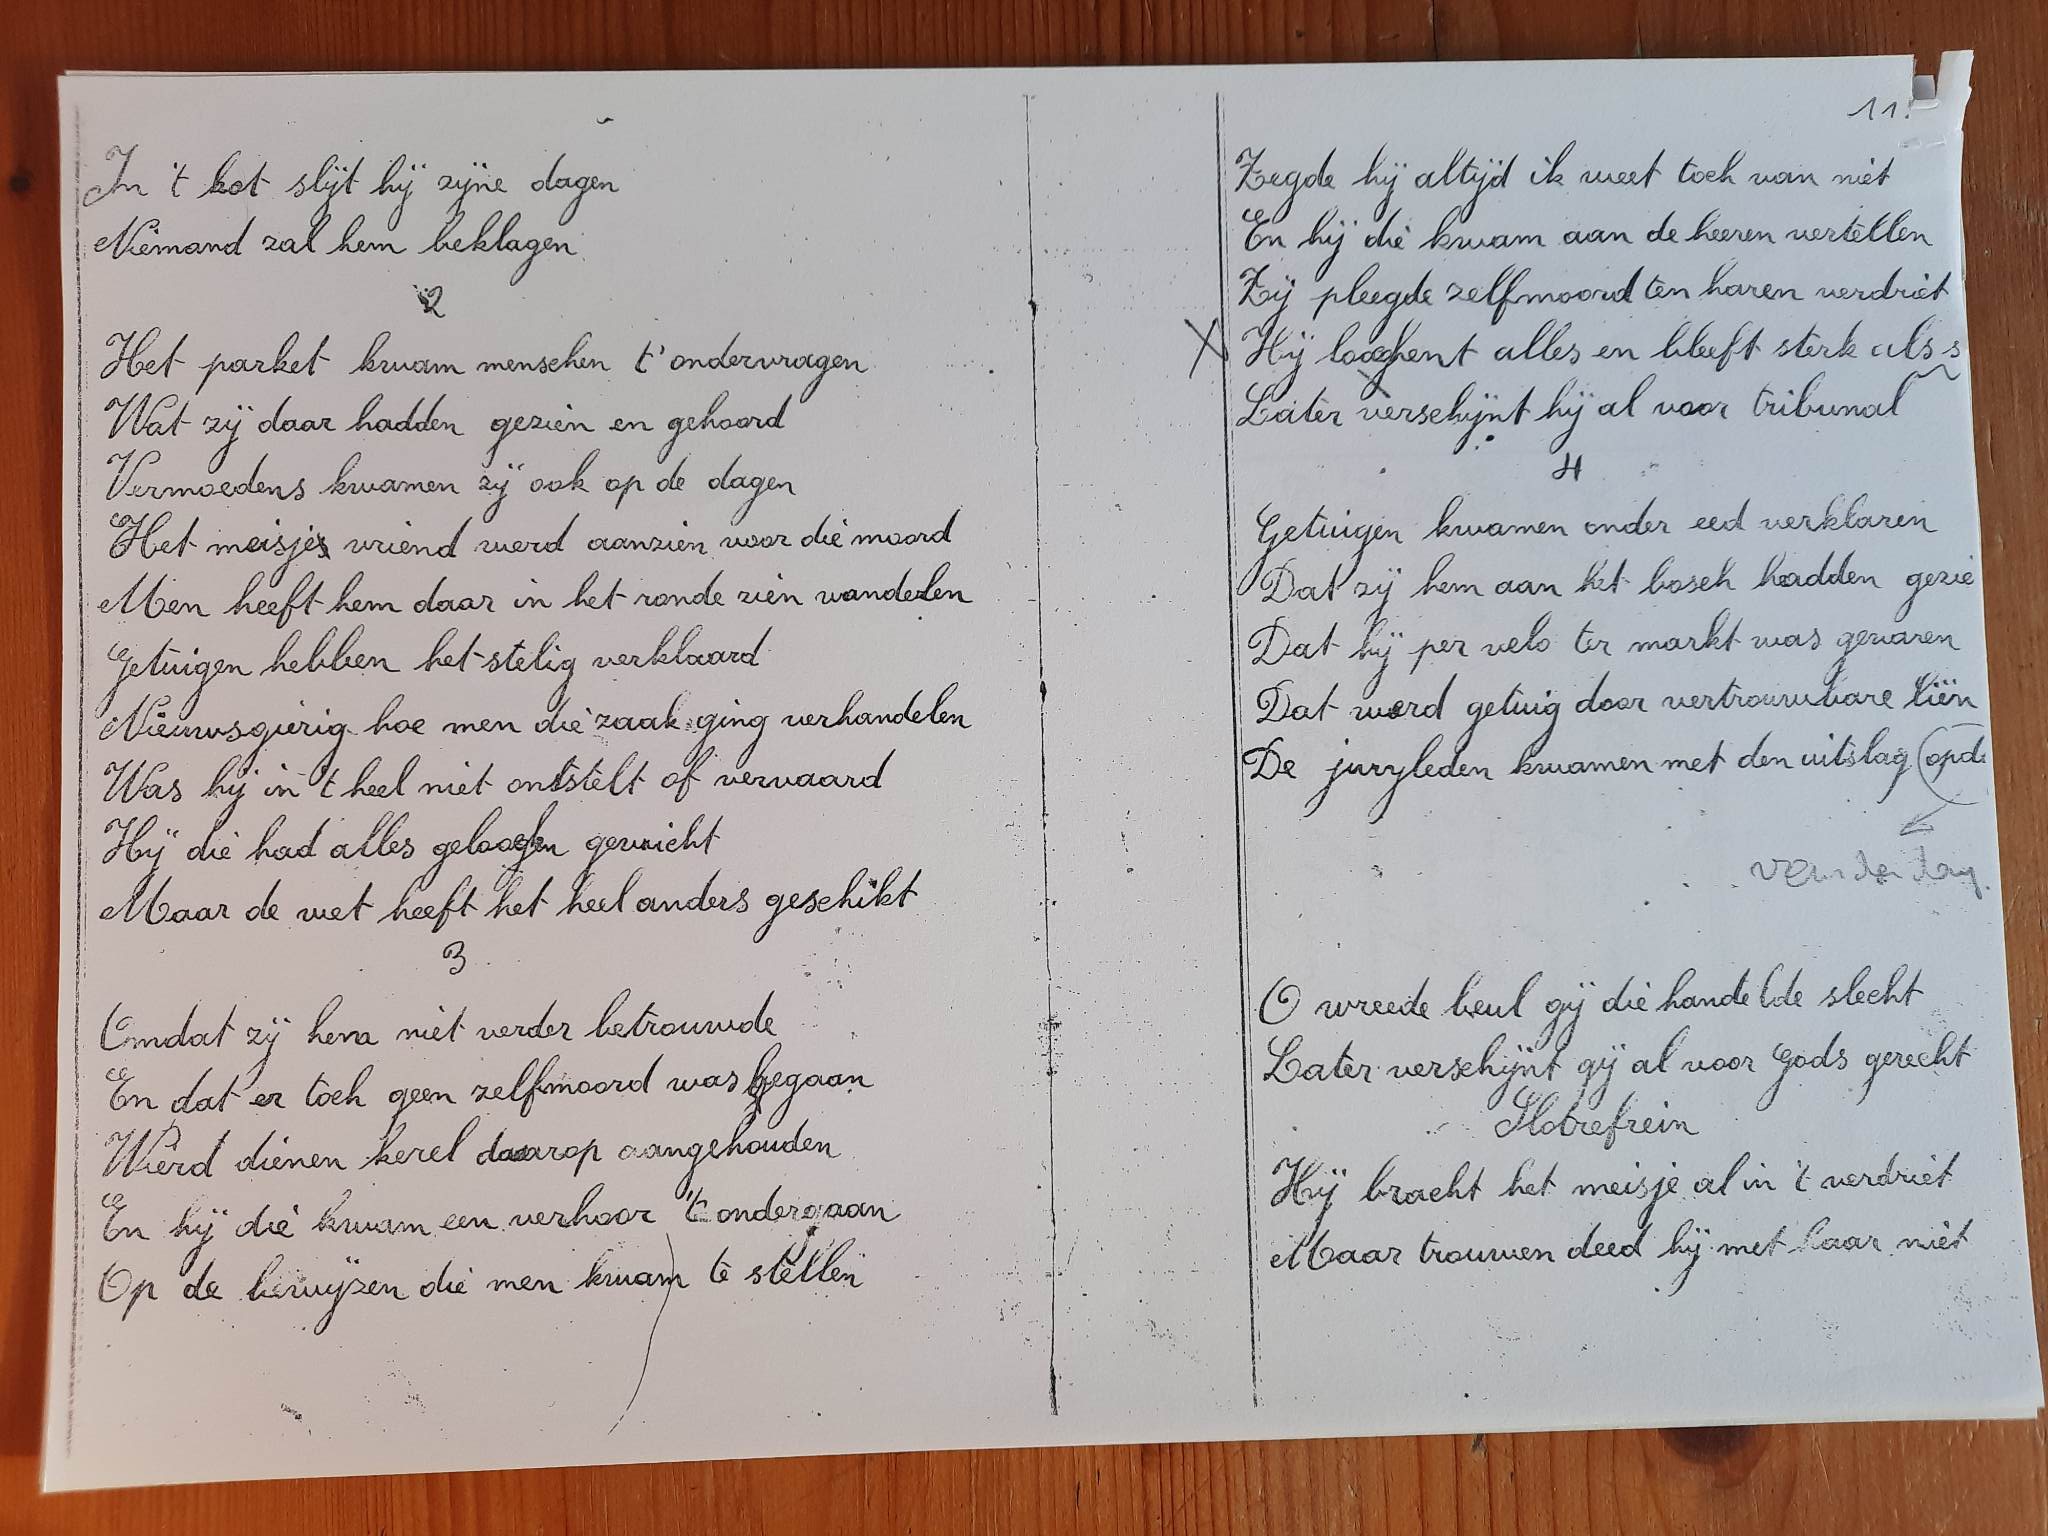 In 't kot slijt hij zijne dagen
Niemand zal hem beklagen
2
Het parket kwam menschen t' ondervragen
Wat zij daar hadden gezien en gehoord
Vermoedens kwamen zij ook op de dagen
Het meisjes vriend werd aanzien voor die moord
Men heeft hem daar in het ronde zien wandelen
Getuigen hebben het stelig verklaard
Nieuwsgierig hoe men die zaak ging verhandelen
Was hij in 't heel niet ontstelt of vervaard
Hij die had alles geloochen gewicht
Maar de wet heeft het heel anders geschikt
3
Omdat zij hem niet verder betrouwde
En dat er toch geen zelfmoord was begaan
Wierd dienen kerel daarop aangehouden
En hij die kwam een verhoor 't ondergaan
Op de bewijzen die men kwam te stellen
11.
Zegde hij altijd ik weet toch van niet
En hij die kwam aan de heeren vertellen
Zij pleegde zelfmoord ten haren verdriet
X Hij loochent alles en bleeft sterk als s
Later verschijnt hij al voor tribunal
4
Getuigen kwamen onder eed verklaren
Dat zij hem aan het bosch hadden gezie
Dat hij per velo ter markt was gevaren
Dat werd getuig door vertrouwbare liën
De juryleden kwamen met den uitslag (opd
van den dag.
O wreede beul gij die handelde slecht
Later verschijnt gij al voor Gods gerecht
Slotrefrein
Hij bracht het meisje al in 't verdriet
Maar trouwen deed hij met haar niet